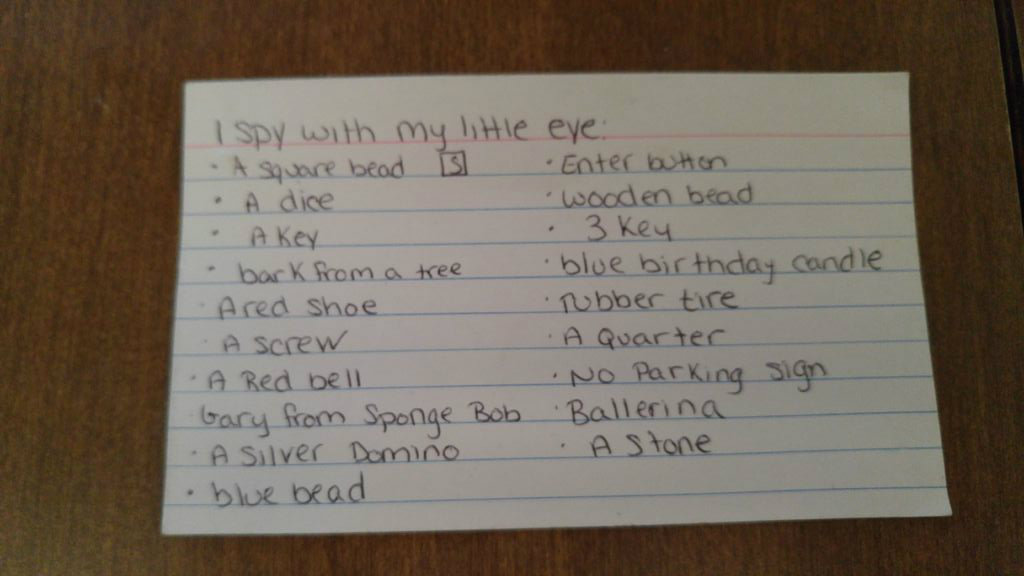 I spy with my little eye:
• A square bead [S]
• A dice
• A Key
• bark from a tree
• A red shoe
• A screw
• A Red bell
Gary from Sponge Bob
• A Silver Domino
• blue bead
• Enter button
• wooden bead
• 3 Key
• blue birthday candle
• rubber tire
• A Quarter
• NO Parking sign
• Ballerina
• A Stone